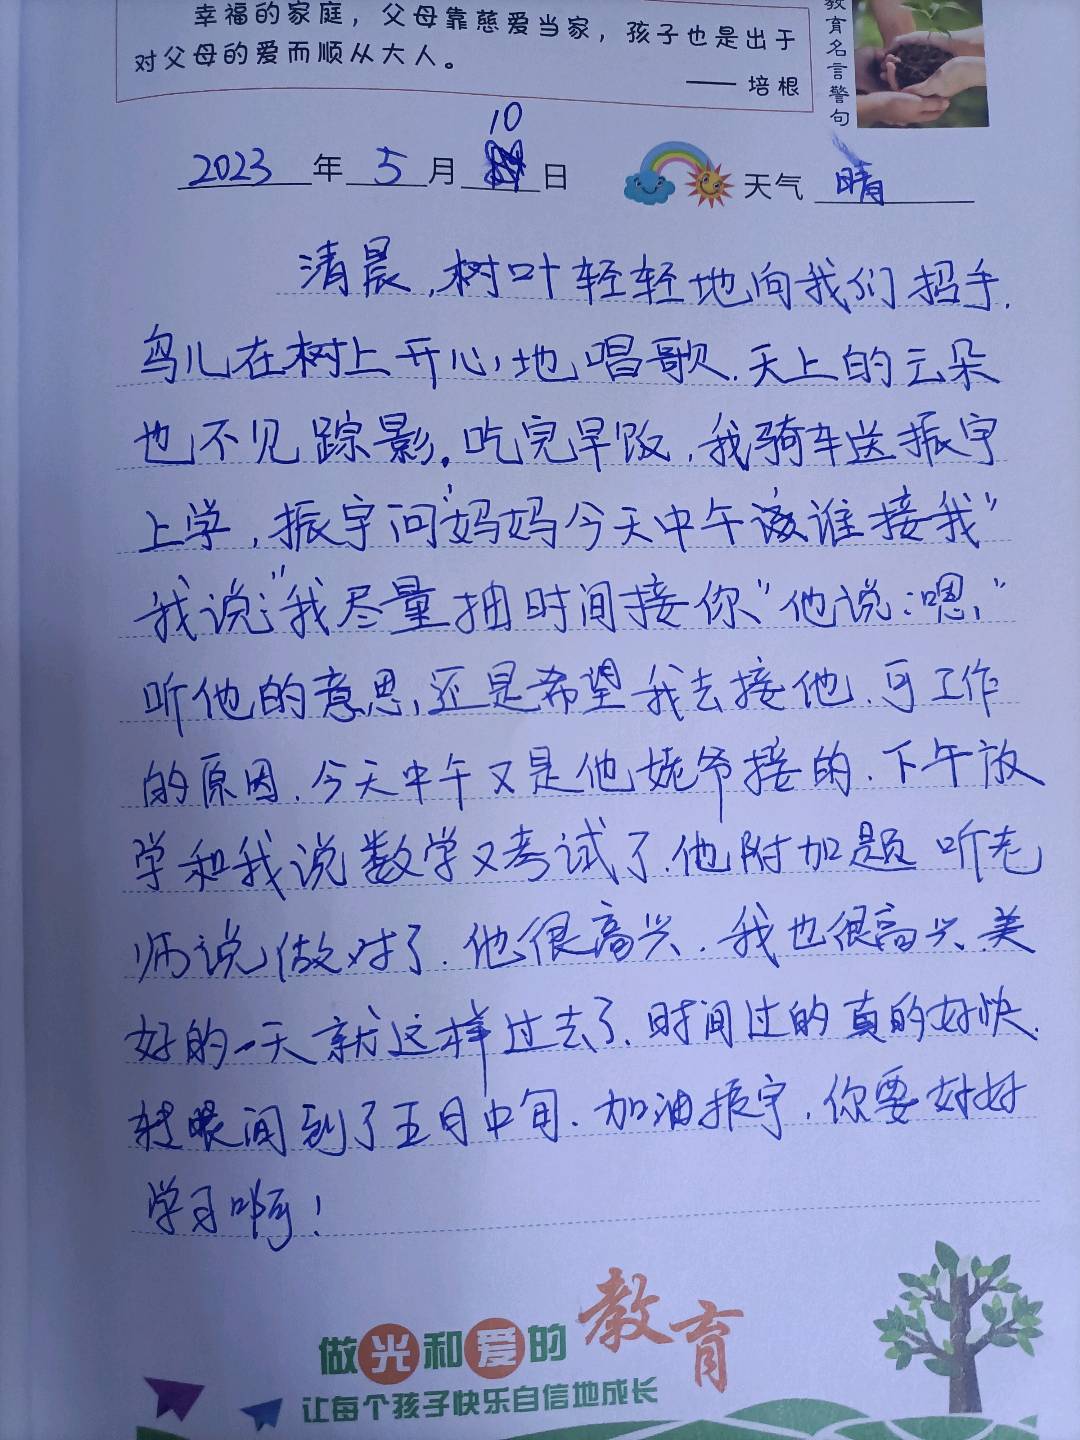 幸福的家庭，父母靠慈爱当家，孩子也是出于
对父母的爱而顺从大人。
——培根
教育名言警句
2023年5月10日
天气 晴
清晨,树叶轻轻地向我们招手.
鸟儿在树上开心地唱歌.天上的云朵
也不见踪影。吃完早饭,我骑车送振宇
上学,振宇问"妈妈今天中午该谁接我"
我说:"我尽量抽时间接你"他说:嗯,"
听他的意思,还是希望我去接他.可工作
的原因.今天中午又是他姥爷接的.下午放
学和我说数学又考试了.他附加题 听老
师说做对了.他很高兴.我也很高兴.美
好的一天就这样过去了.时间过的真的好快.
转眼间到了五月中旬.加油振宇.你要好好
学习啊!
做光和爱的教育
让每个孩子快乐自信地成长